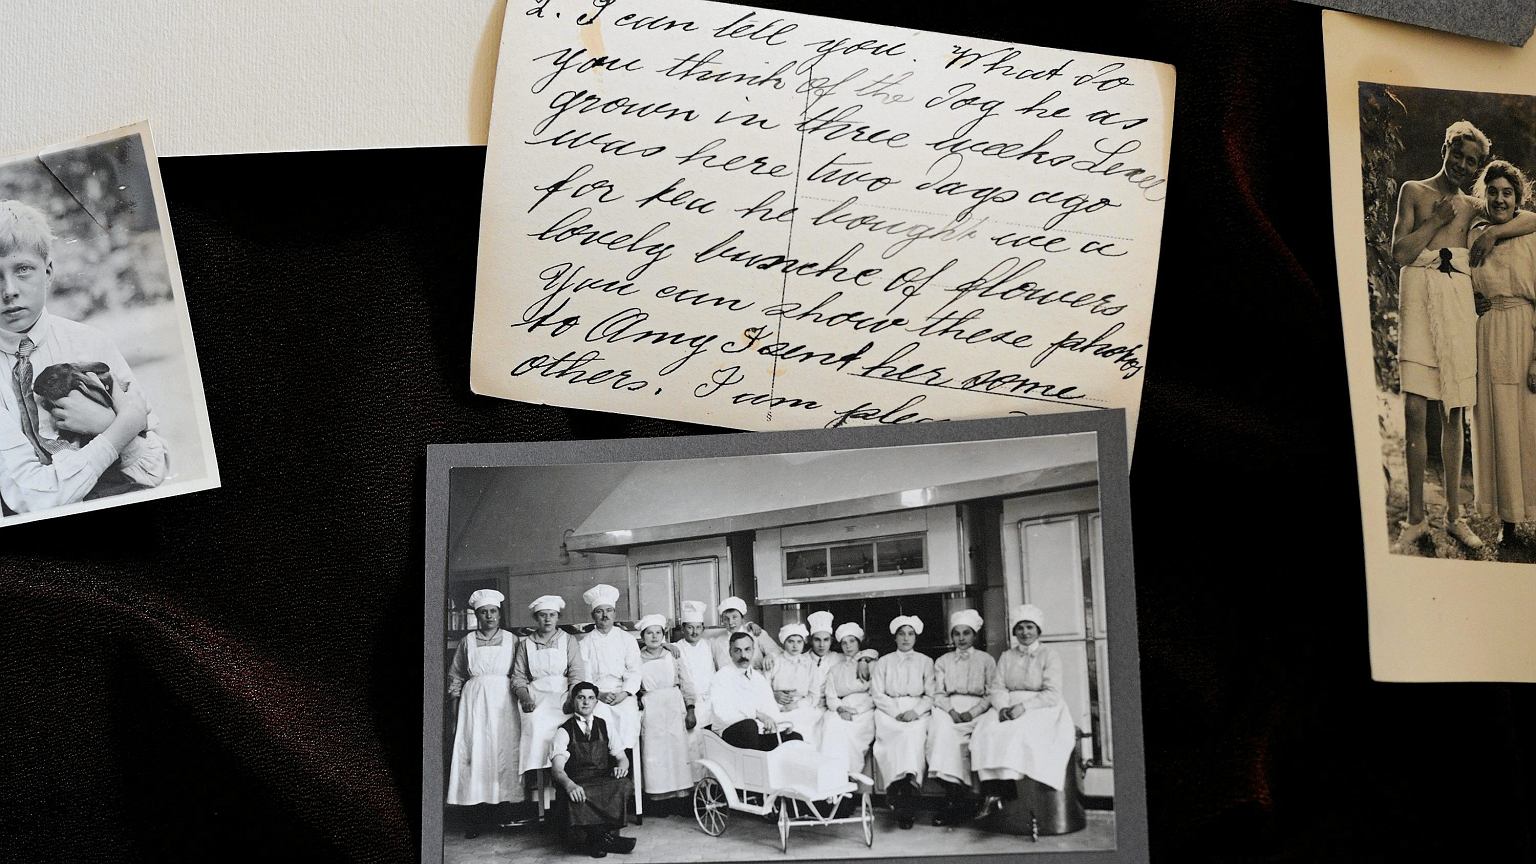 2. I can tell you. What do
you think of the dog he as
grown in three weeks
was here two days ago
for tea he bought me a
lovely bunche of flowers
You can show these photos
to Amy I send her some
others. I am